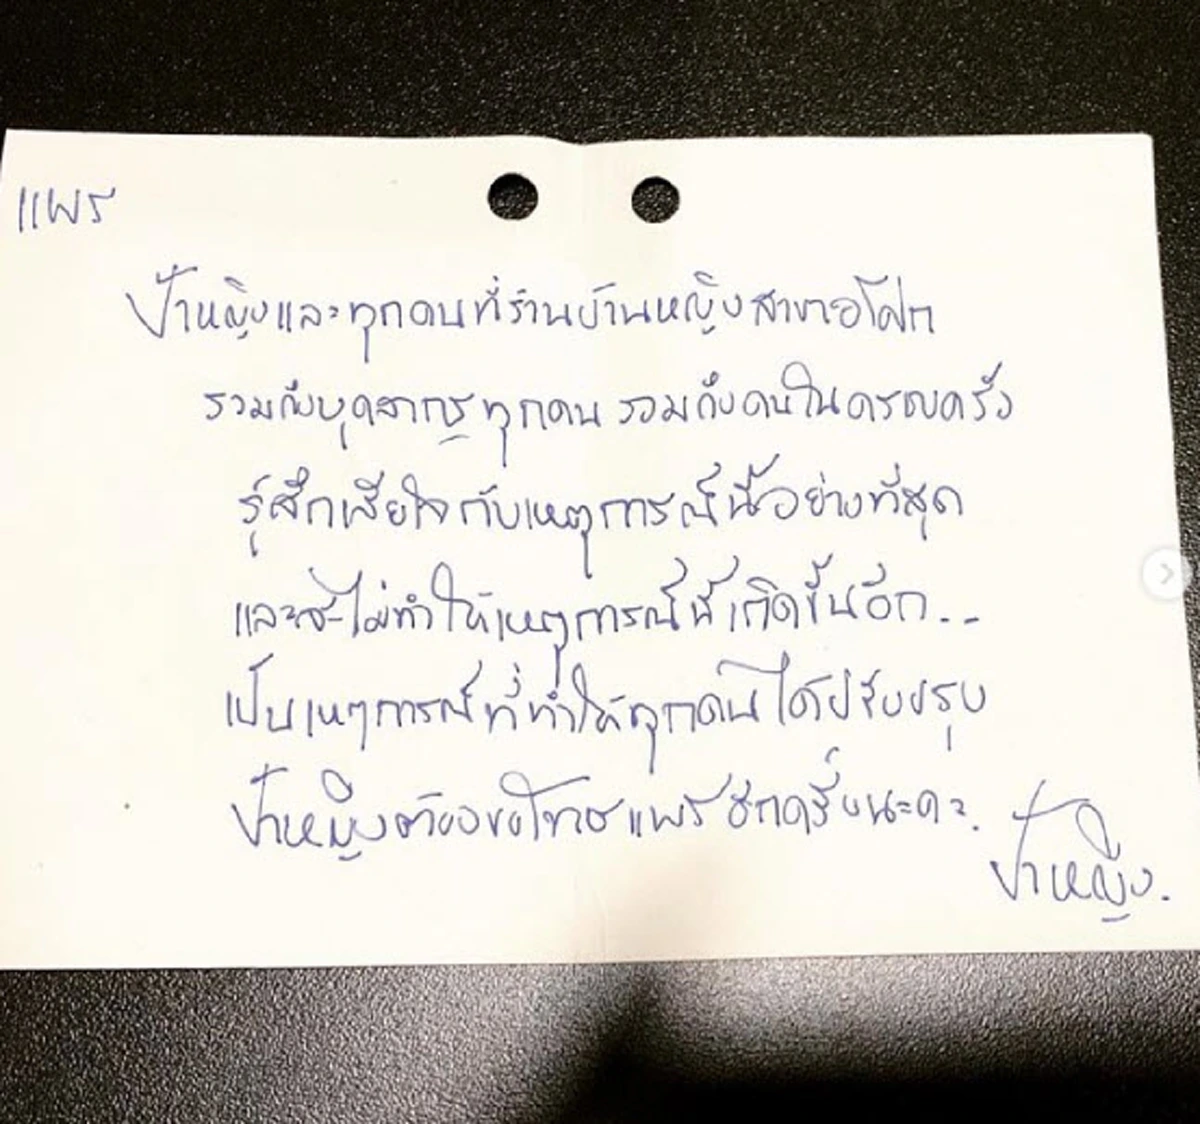 แพร
ป้าหญิงและทุกคนที่ร้านบ้านหญิงสาขาอโศก
รวมถึงบุคลากรทุกคน รวมถึงคนในครอบครัว
รู้สึกเสียใจกับเหตุการณ์นี้อย่างที่สุด
และจะไม่ทำให้เหตุการณ์นี้เกิดขึ้นอีก...
เป็นเหตุการณ์ที่ทำให้ทุกคนได้ปรับปรุง
ป้าหญิงต้องขอโทษแพรอีกครั้งนะคะ.
ป้าหญิง.